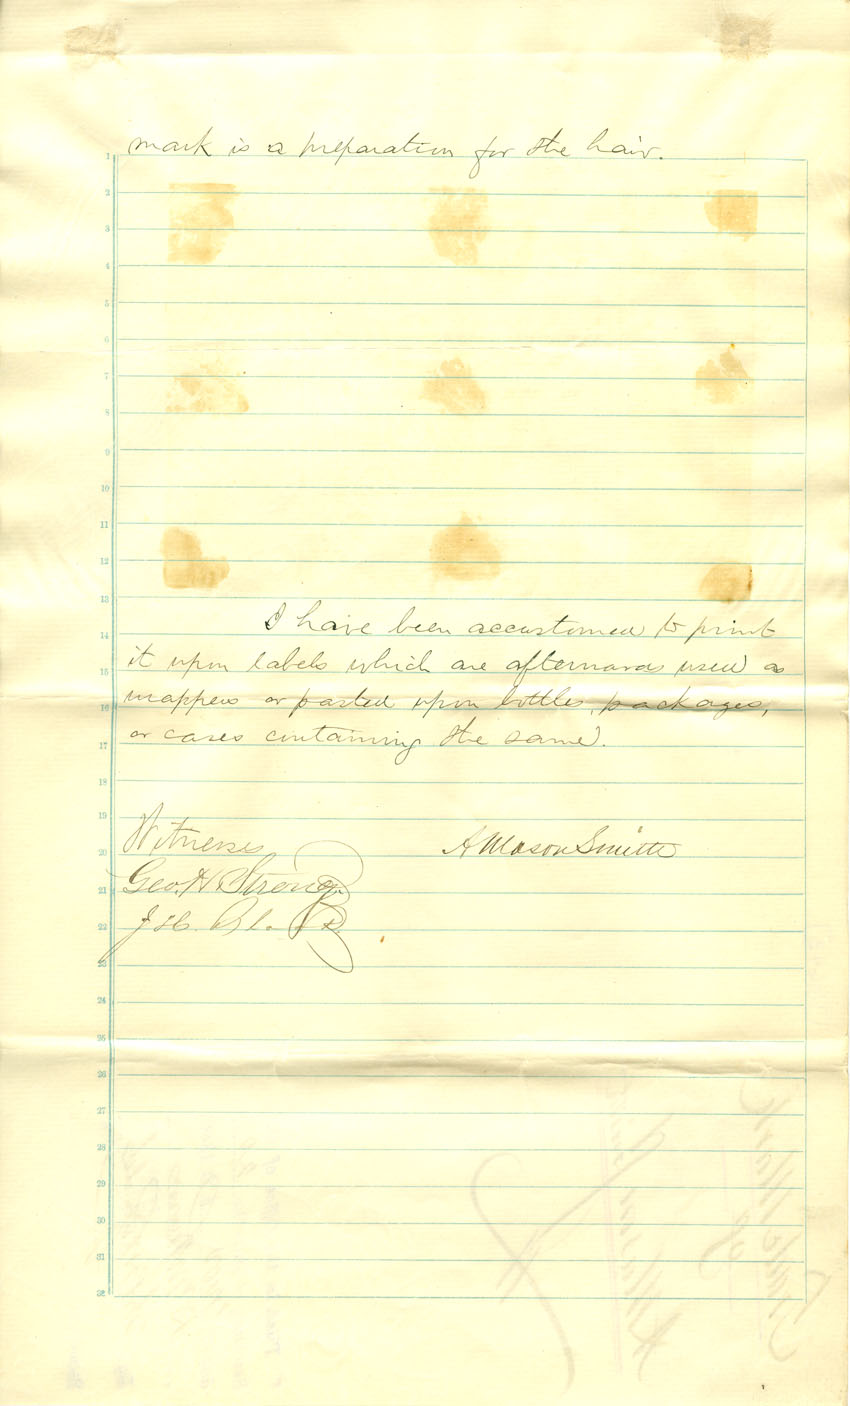 mark is a preparation for the hair.
I have been accustomed to print
it upon labels which are afterwards used as
wrappers or pasted upon bottles, packages,
or cases containing the same.
Witnesses
A Mason Smith
Geo. H Strong
1
2
3
4
5
6
7
8
9
10
11
12
13
14
15
16
17
18
19
20
21
22
23
24
25
26
27
28
29
30
31
32